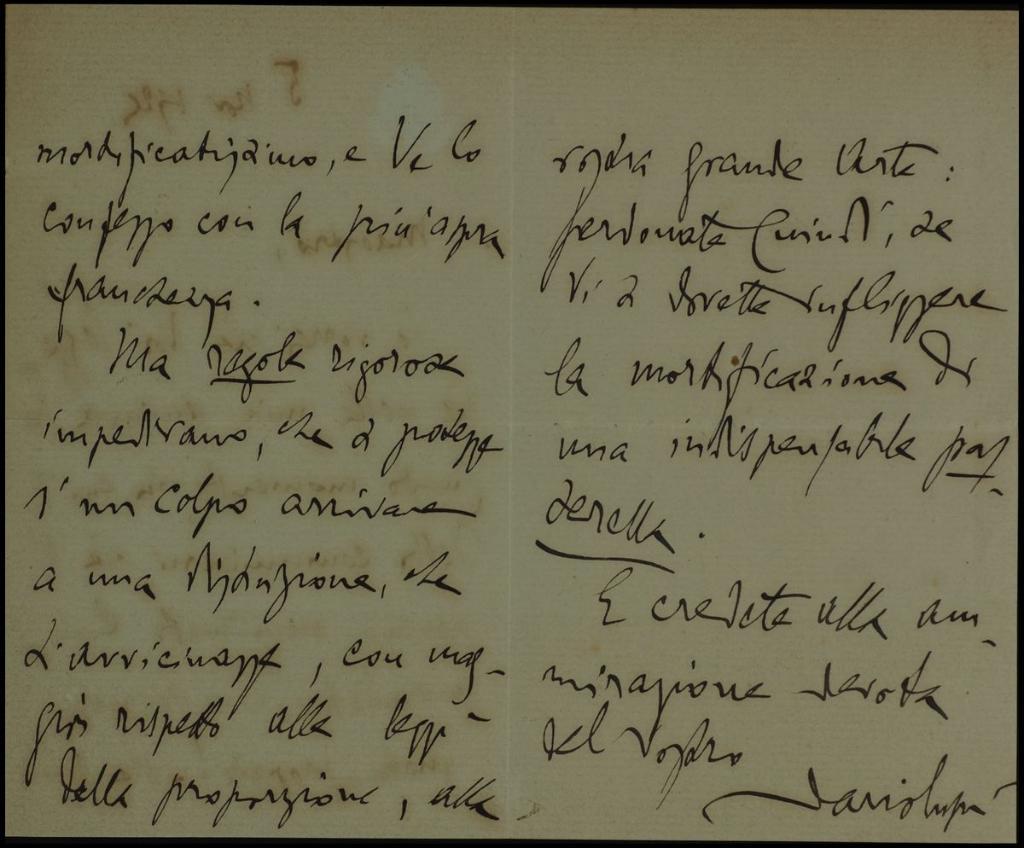 mortificatissimo, e Ve lo
confesso con la più aspra
franchezza.
Ma regole rigorose
impedivano, che si potesse
d'un colpo arrivare
a una distinzione, che
s'avvicinasse, con mag-
gior rispetto alle leggi
della proporzione, alla
vostra grande Arte:
perdonate quindi, se
Vi si dovette infliggere
la mortificazione di
una indispensabile pas-
serella.
E credete alla am-
mirazione devota
del Vostro
Dario Lupi